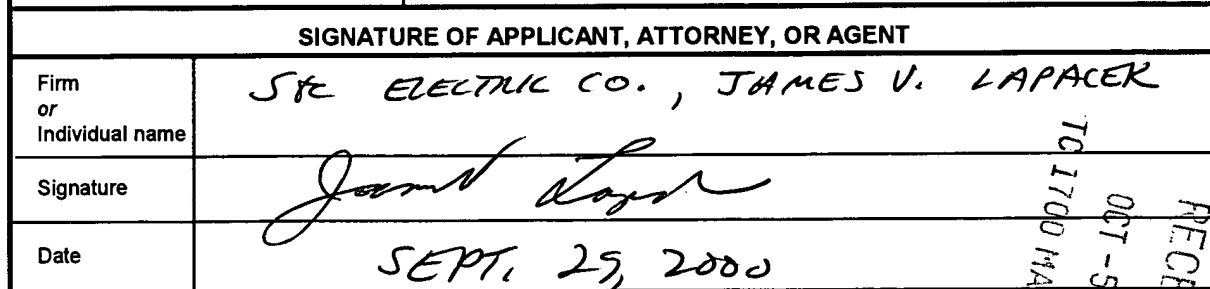 SIGNATURE OF APPLICANT, ATTORNEY, OR AGENT
Firm
or
Individual name
S&C ELECTRIC CO., JAMES V. LAPACEK
Signature
Date
SEPT. 29, 2000
TC 1700 MA
OCT -5
RECE